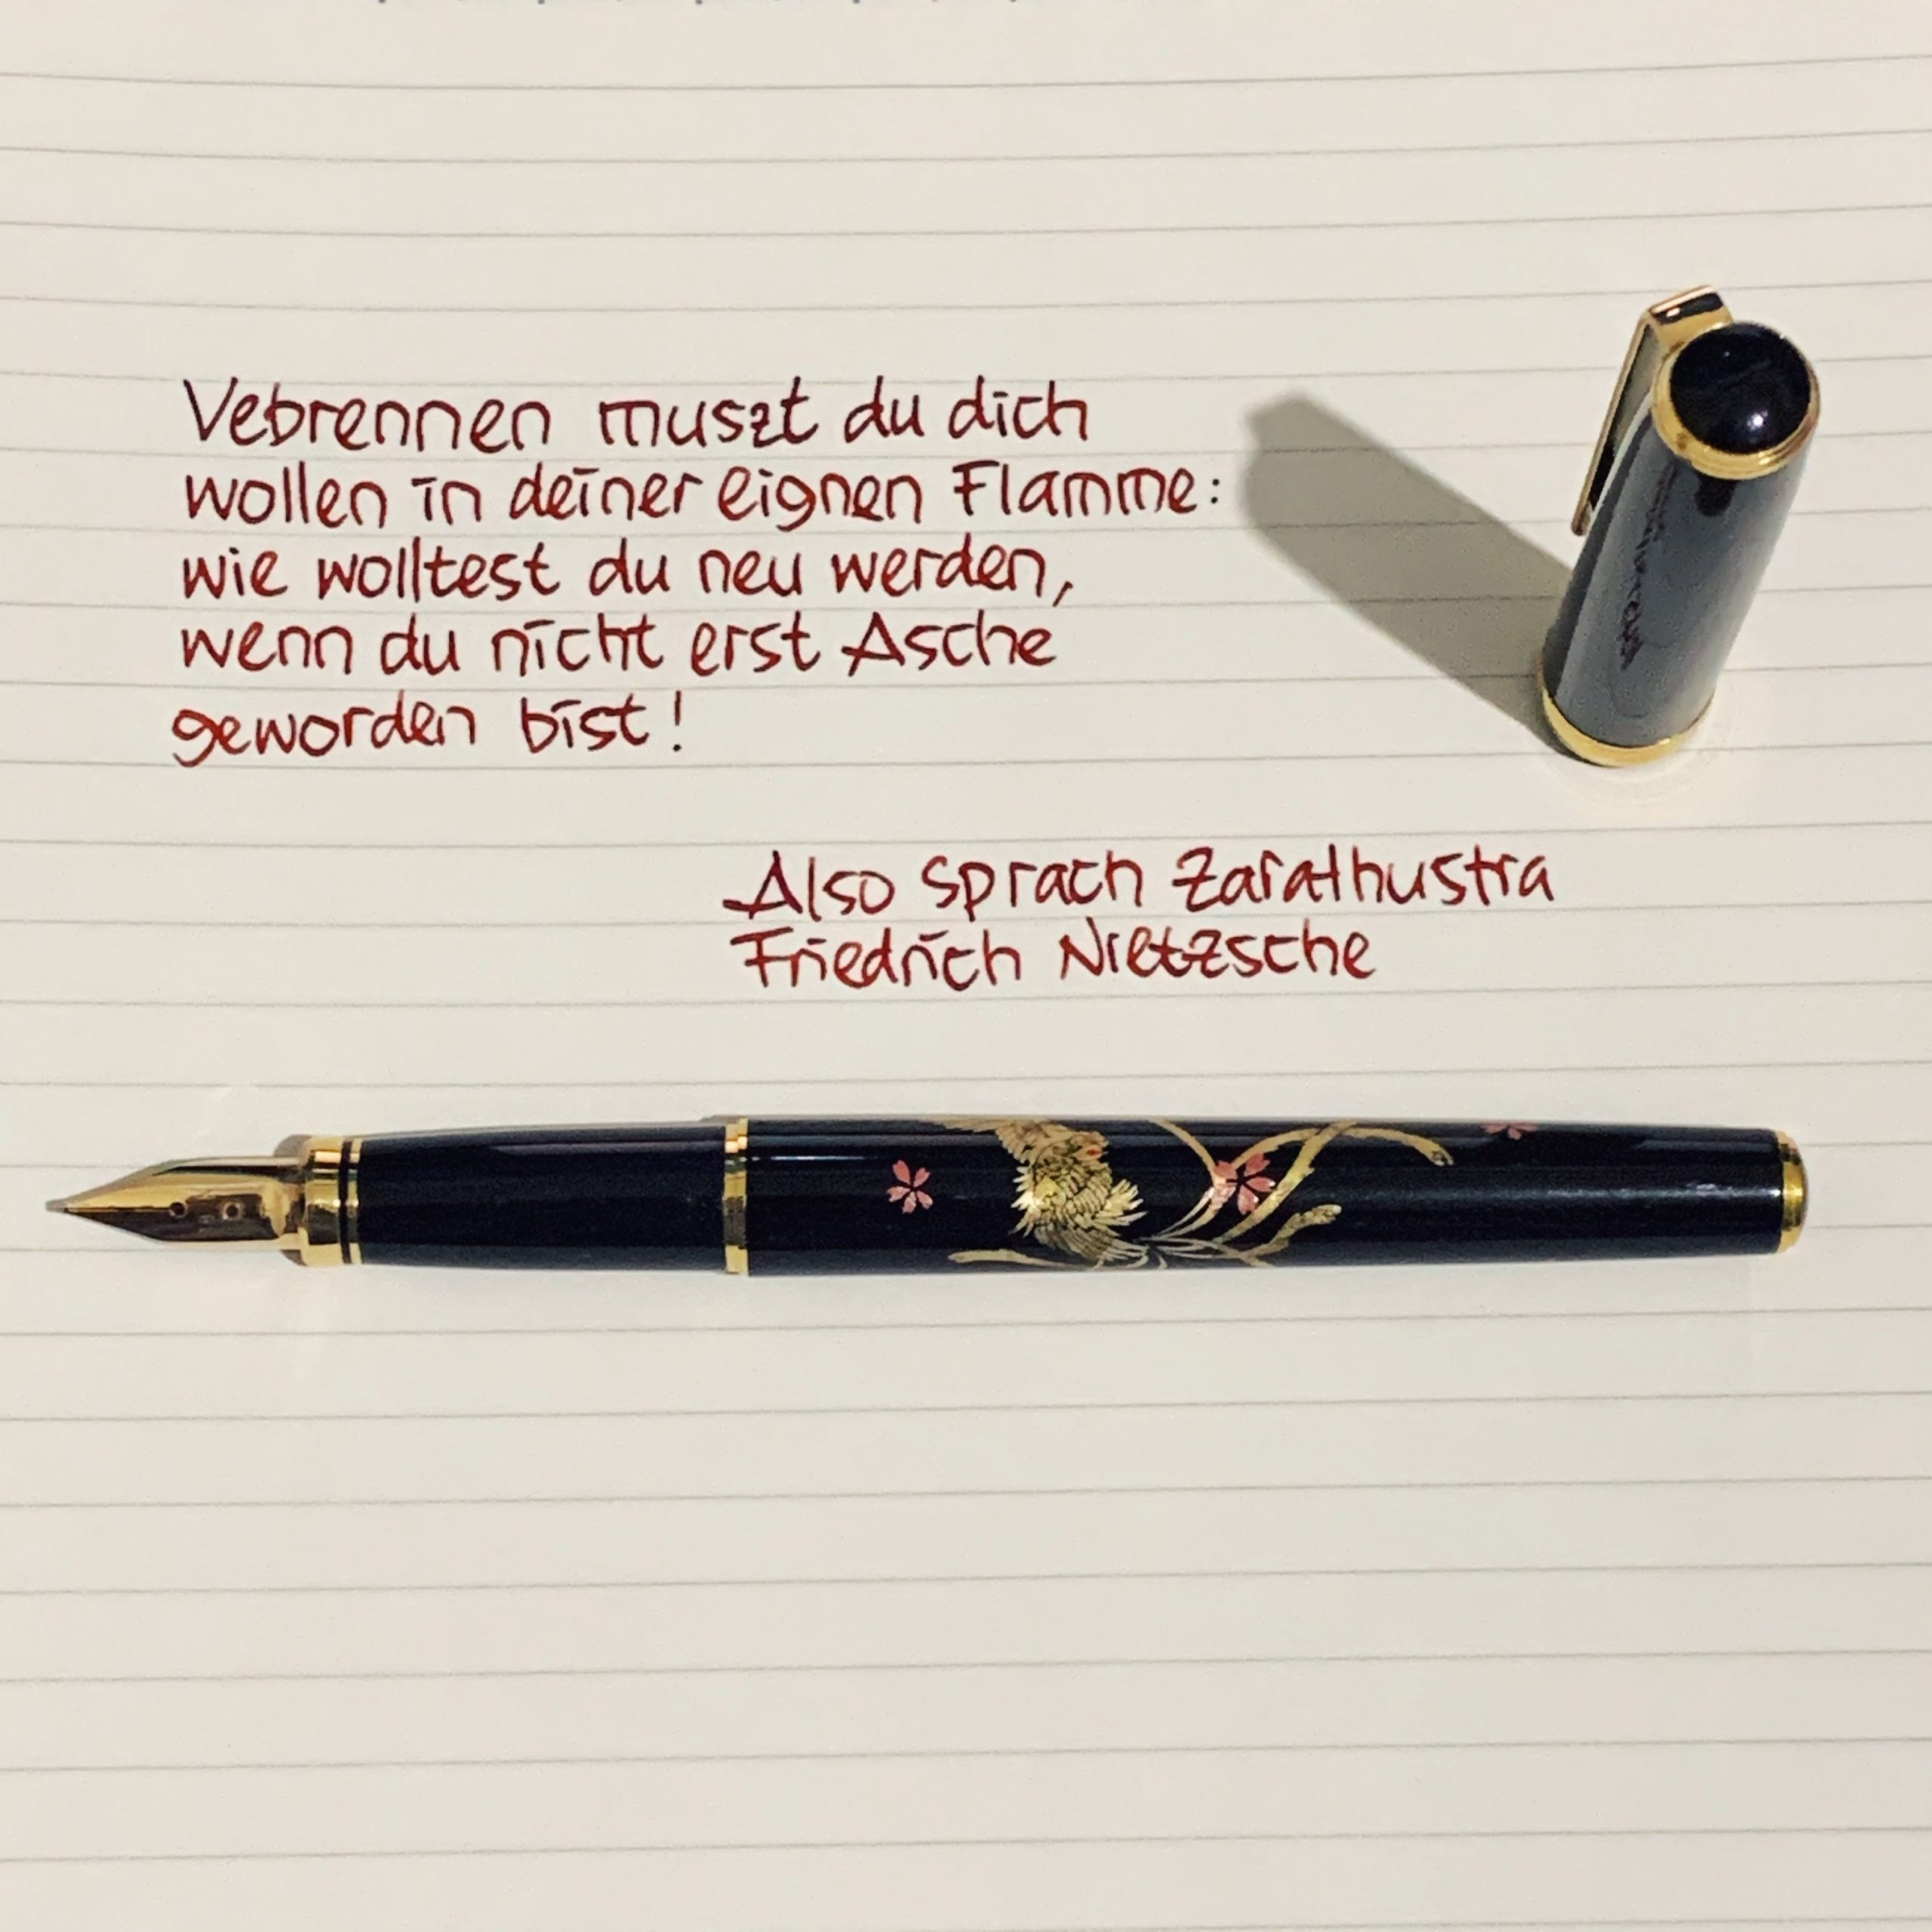 Vebrennen muszt du dich
wollen in deiner eignen Flamme:
wie wolltest du neu werden,
wenn du nicht erst Asche
geworden bist!
Also sprach Zarathustra
Friedrich Nietzsche